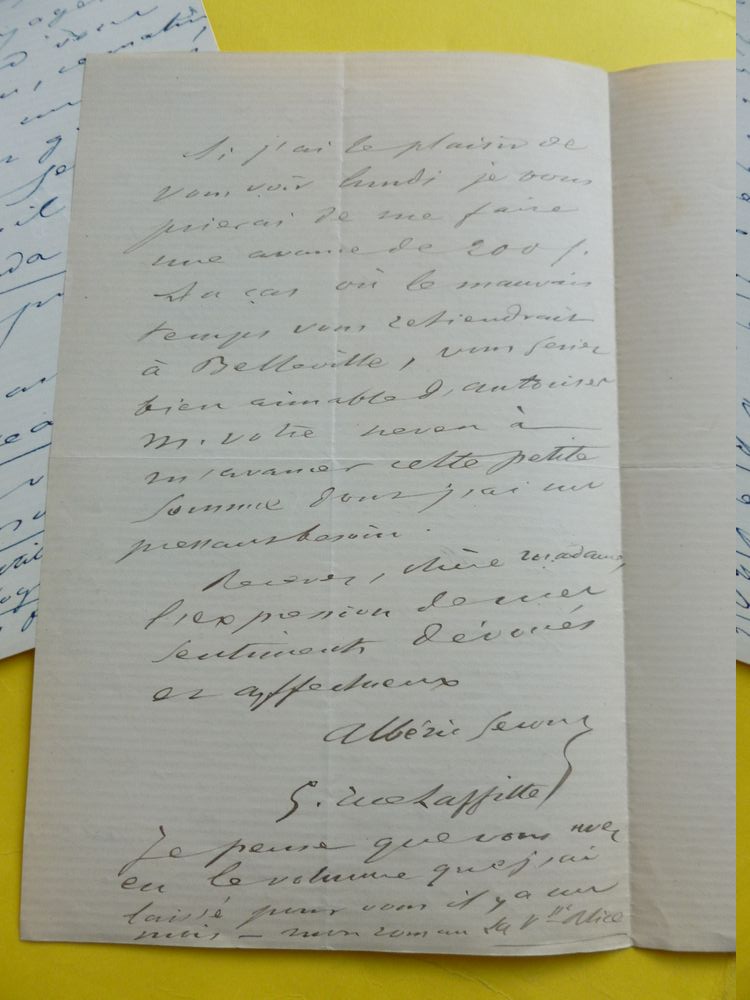 Si j'ai le plaisir de
vous voir lundi je vous
prierai de me faire
une avance de 200 f.
Au cas où le mauvais
temps vous retiendrait
à Belleville, vous seriez
bien aimable d'autoriser
M. votre neveu à
m'avancer cette petite
somme dont j'ai un
pressant besoin.
Recevez, chère madame,
l'expression de mes
sentiments dévoués
et affectueux
Albéric Second
5. rue Laffitte
Je pense que vous avez
eu le volume que j'ai
laissé pour vous il y a un
mois — mon roman La Vtesse Alice